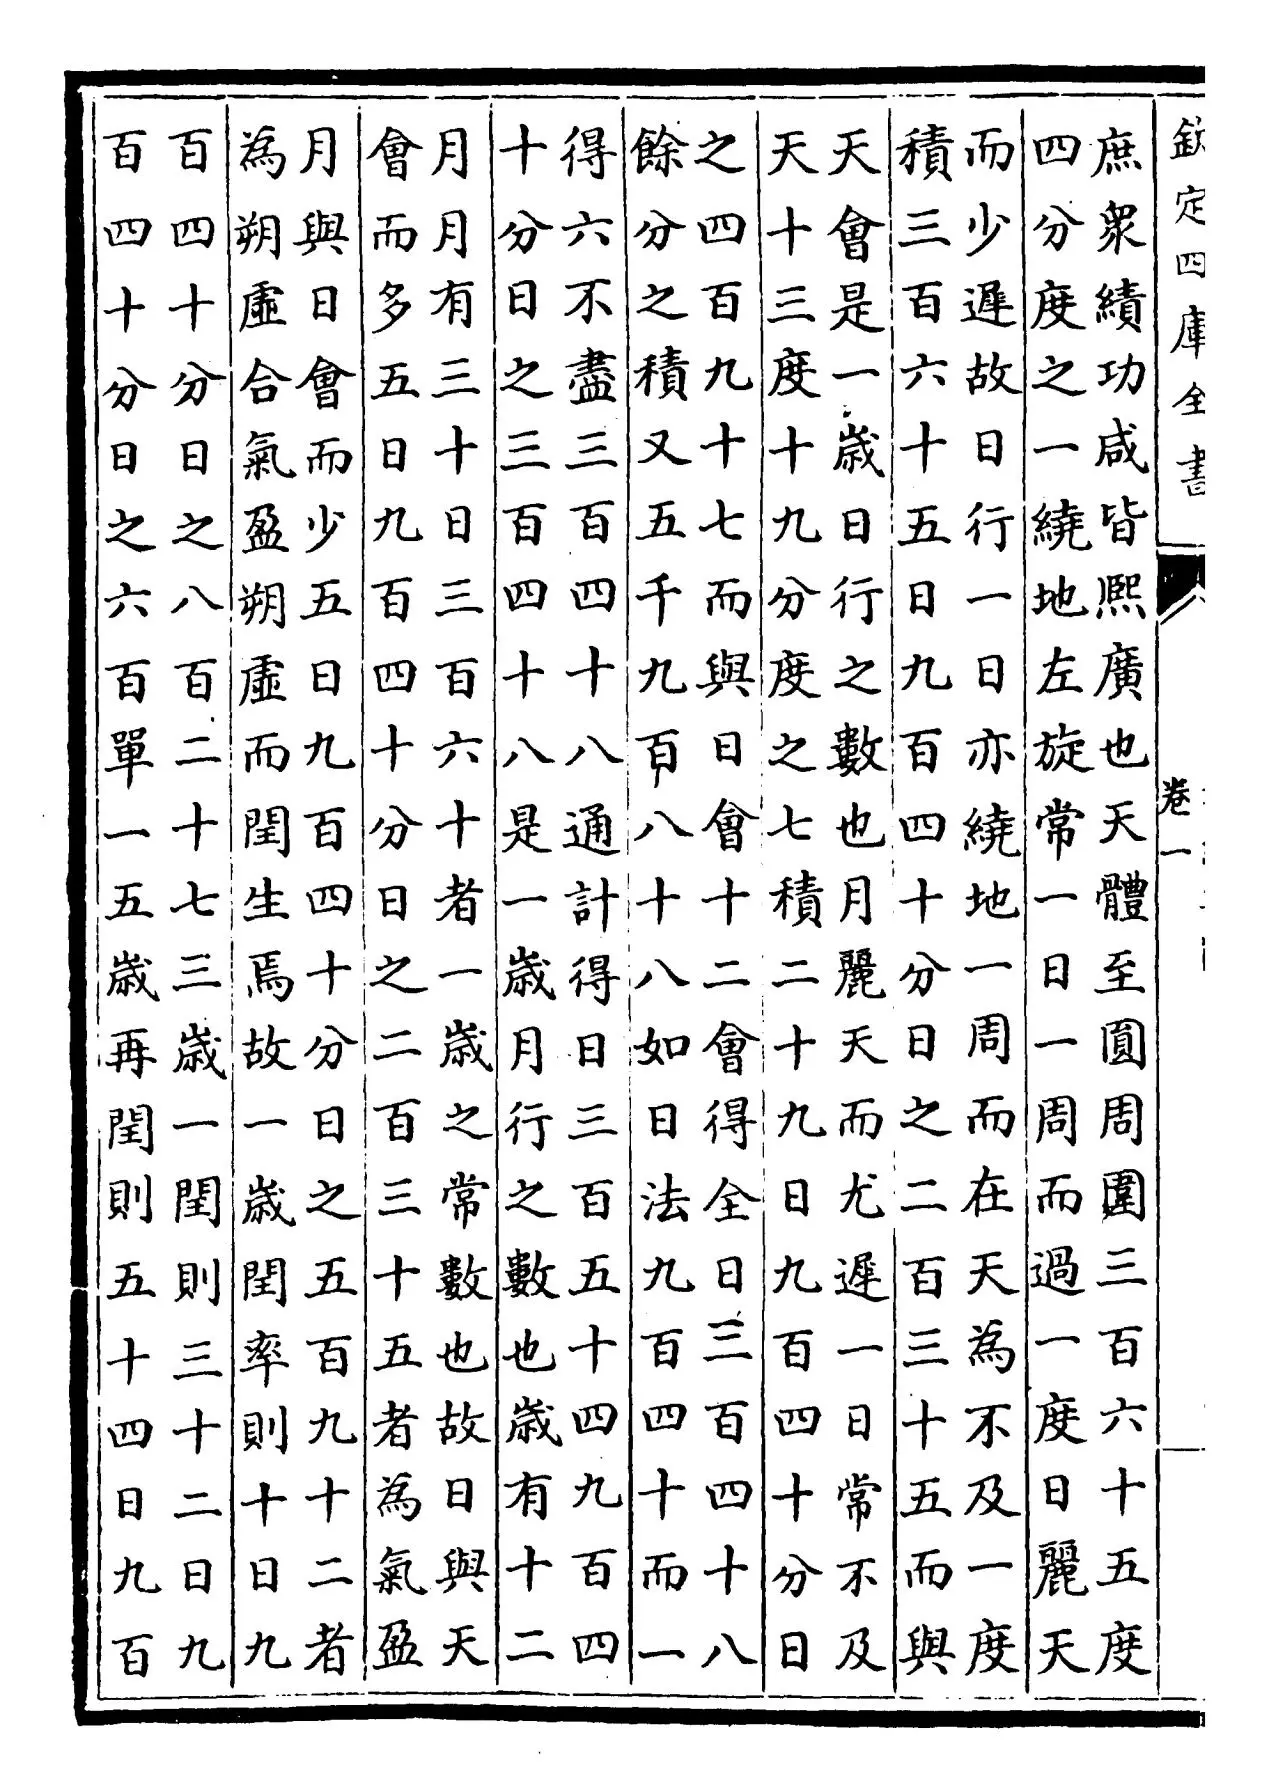 欽定四庫全書
卷一
庶衆績功咸皆熙廣也天體至圓周圍三百六十五度
四分度之一繞地左旋常一日一周而過一度日麗天
而少遲故日行一日亦繞地一周而在天為不及一度
積三百六十五日九百四十分日之二百三十五而與
天會是一歲日行之數也月麗天而尤遲一日常不及
天十三度十九分度之七積二十九日九百四十分日
之四百九十七而與日會十二會得全日三百四十八
餘分之積又五千九百八十八如日法九百四十而一
得六不盡三百四十八通計得日三百五十四九百四
十分日之三百四十八是一歲月行之數也歲有十二
月月有三十日三百六十者一歲之常數也故日與天
會而多五日九百四十分日之二百三十五者為氣盈
月與日會而少五日九百四十分日之五百九十二者
為朔虛合氣盈朔虛而閏生焉故一歲閏率則十日九
百四十分日之八百二十七三歲一閏則三十二日九
百四十分日之六百單一五歲再閏則五十四日九百